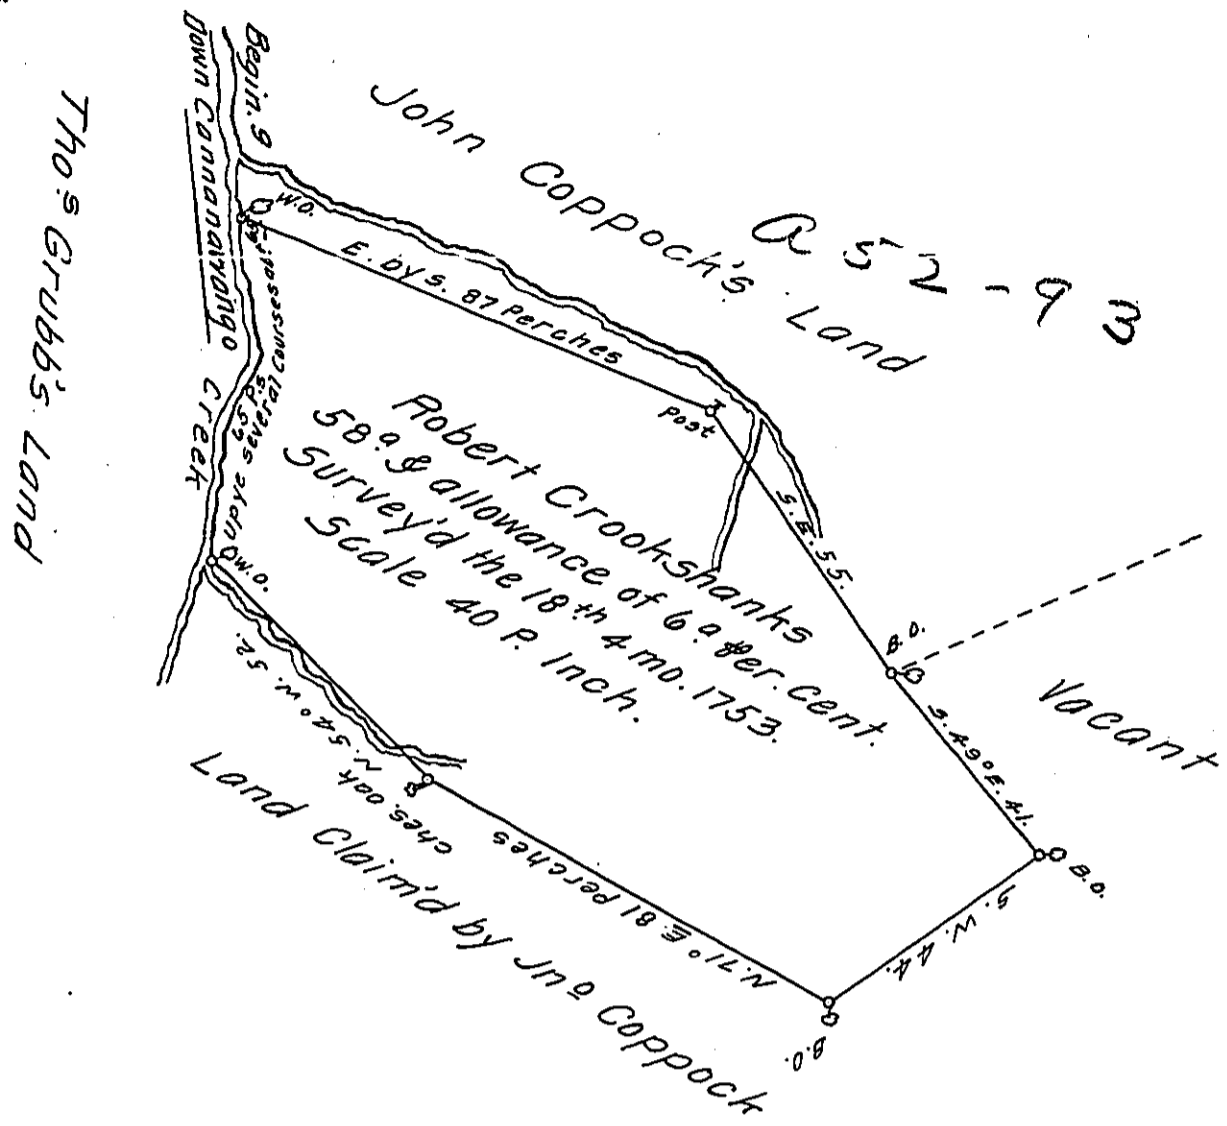 a 52-93
John Coppock's Land
Thos Grubb's Land
Begin.g
Down Connanawongo Creek
W.O.
E. by S. 87 Perches
Post
S.E. 55.
B.O.
Vacant
S. 49° E. 41.
B.O.
S. W. 44.
B.O.
N. 71° E. 81 perches
ches. oak
N. 54° W. 52
W.O.
Up ye several Courses
65 Ps
Robert Crookshanks
58a & allowance of 6a per. cent.
Survey'd the 18th 4mo. 1753.
Scale 40 P. Inch.
Land Claim'd by Jno Coppock